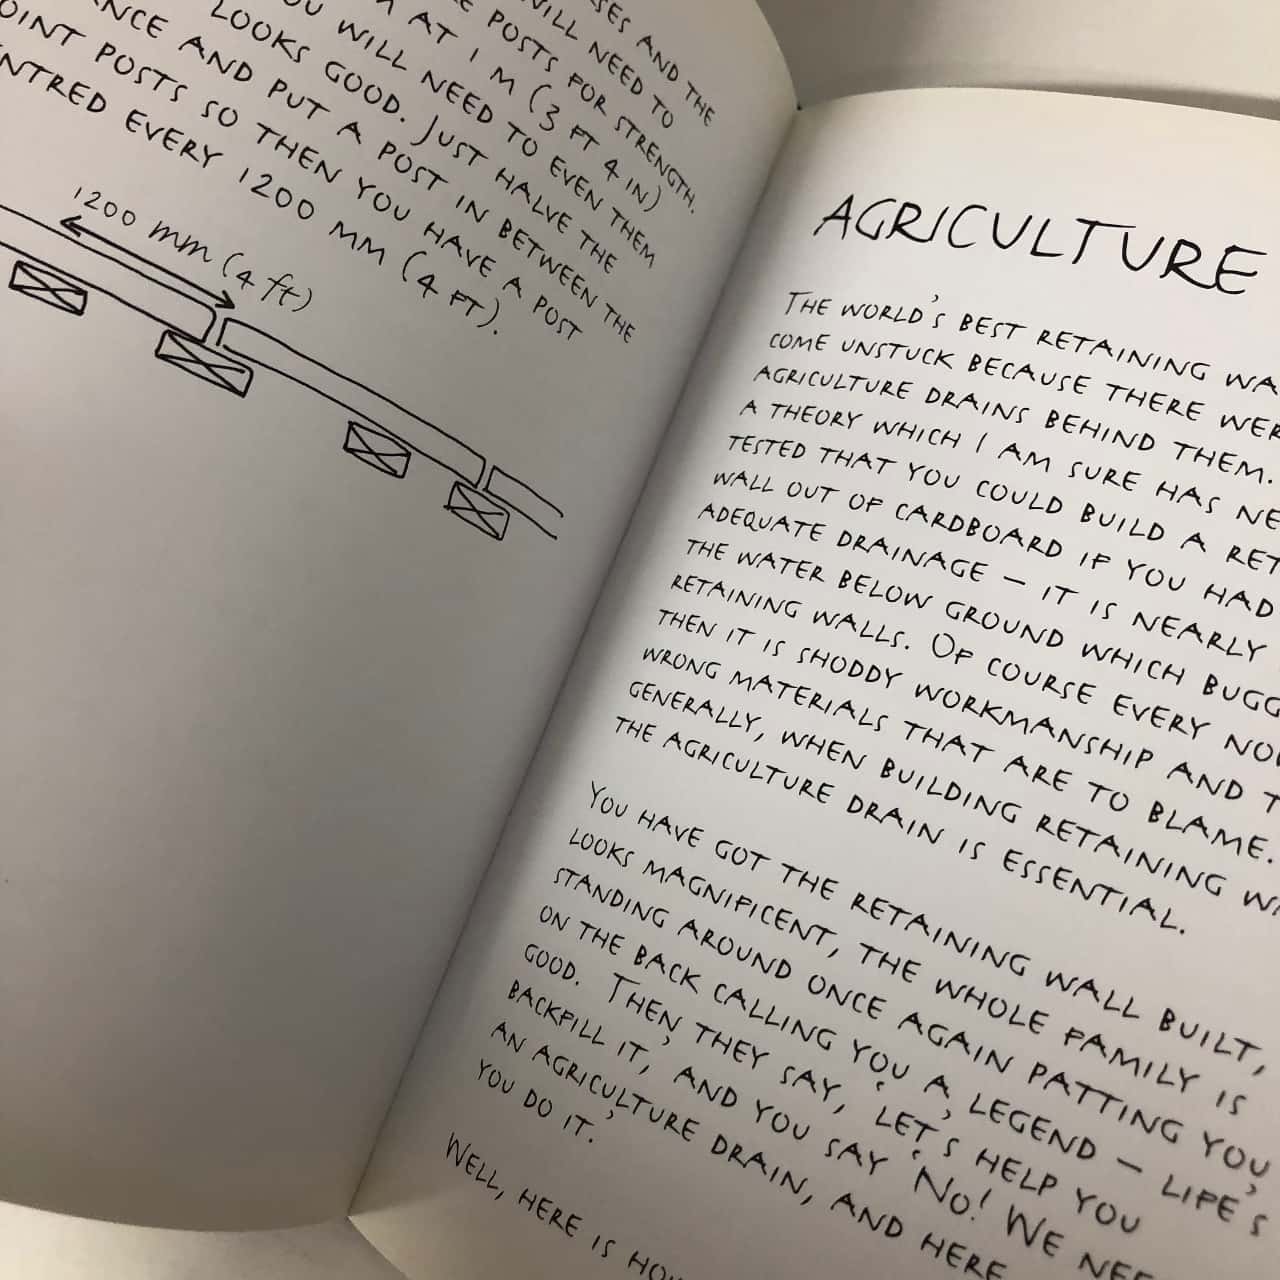 SES AND THE
WILL NEED TO
POSTS FOR STRENGTH.
AT 1 M (3 FT 4 IN)
YOU WILL NEED TO EVEN THEM
LOOKS GOOD. JUST HALVE THE
AND PUT A POST IN BETWEEN THE
POINT POSTS SO THEN YOU HAVE A POST
CENTRED EVERY 1200 MM (4 FT).
1200 mm (4 ft)
AGRICULTURE
THE WORLD'S BEST RETAINING WA
COME UNSTUCK BECAUSE THERE WER
AGRICULTURE DRAINS BEHIND THEM.
A THEORY WHICH I AM SURE HAS NE
TESTED THAT YOU COULD BUILD A RET
WALL OUT OF CARDBOARD IF YOU HAD
ADEQUATE DRAINAGE – IT IS NEARLY
THE WATER BELOW GROUND WHICH BUGG
RETAINING WALLS. OF COURSE EVERY NOW
THEN IT IS SHODDY WORKMANSHIP AND T
WRONG MATERIALS THAT ARE TO BLAME.
GENERALLY, WHEN BUILDING RETAINING WA
THE AGRICULTURE DRAIN IS ESSENTIAL.
YOU HAVE GOT THE RETAINING WALL BUILT,
LOOKS MAGNIFICENT, THE WHOLE FAMILY IS
STANDING AROUND ONCE AGAIN PATTING YOU
ON THE BACK CALLING YOU A LEGEND – LIFE'S
GOOD. THEN THEY SAY, 'LET'S HELP YOU
BACKFILL IT,' AND YOU SAY 'NO! WE NEE
AN AGRICULTURE DRAIN, AND HERE
YOU DO IT.'
WELL, HERE IS HOW